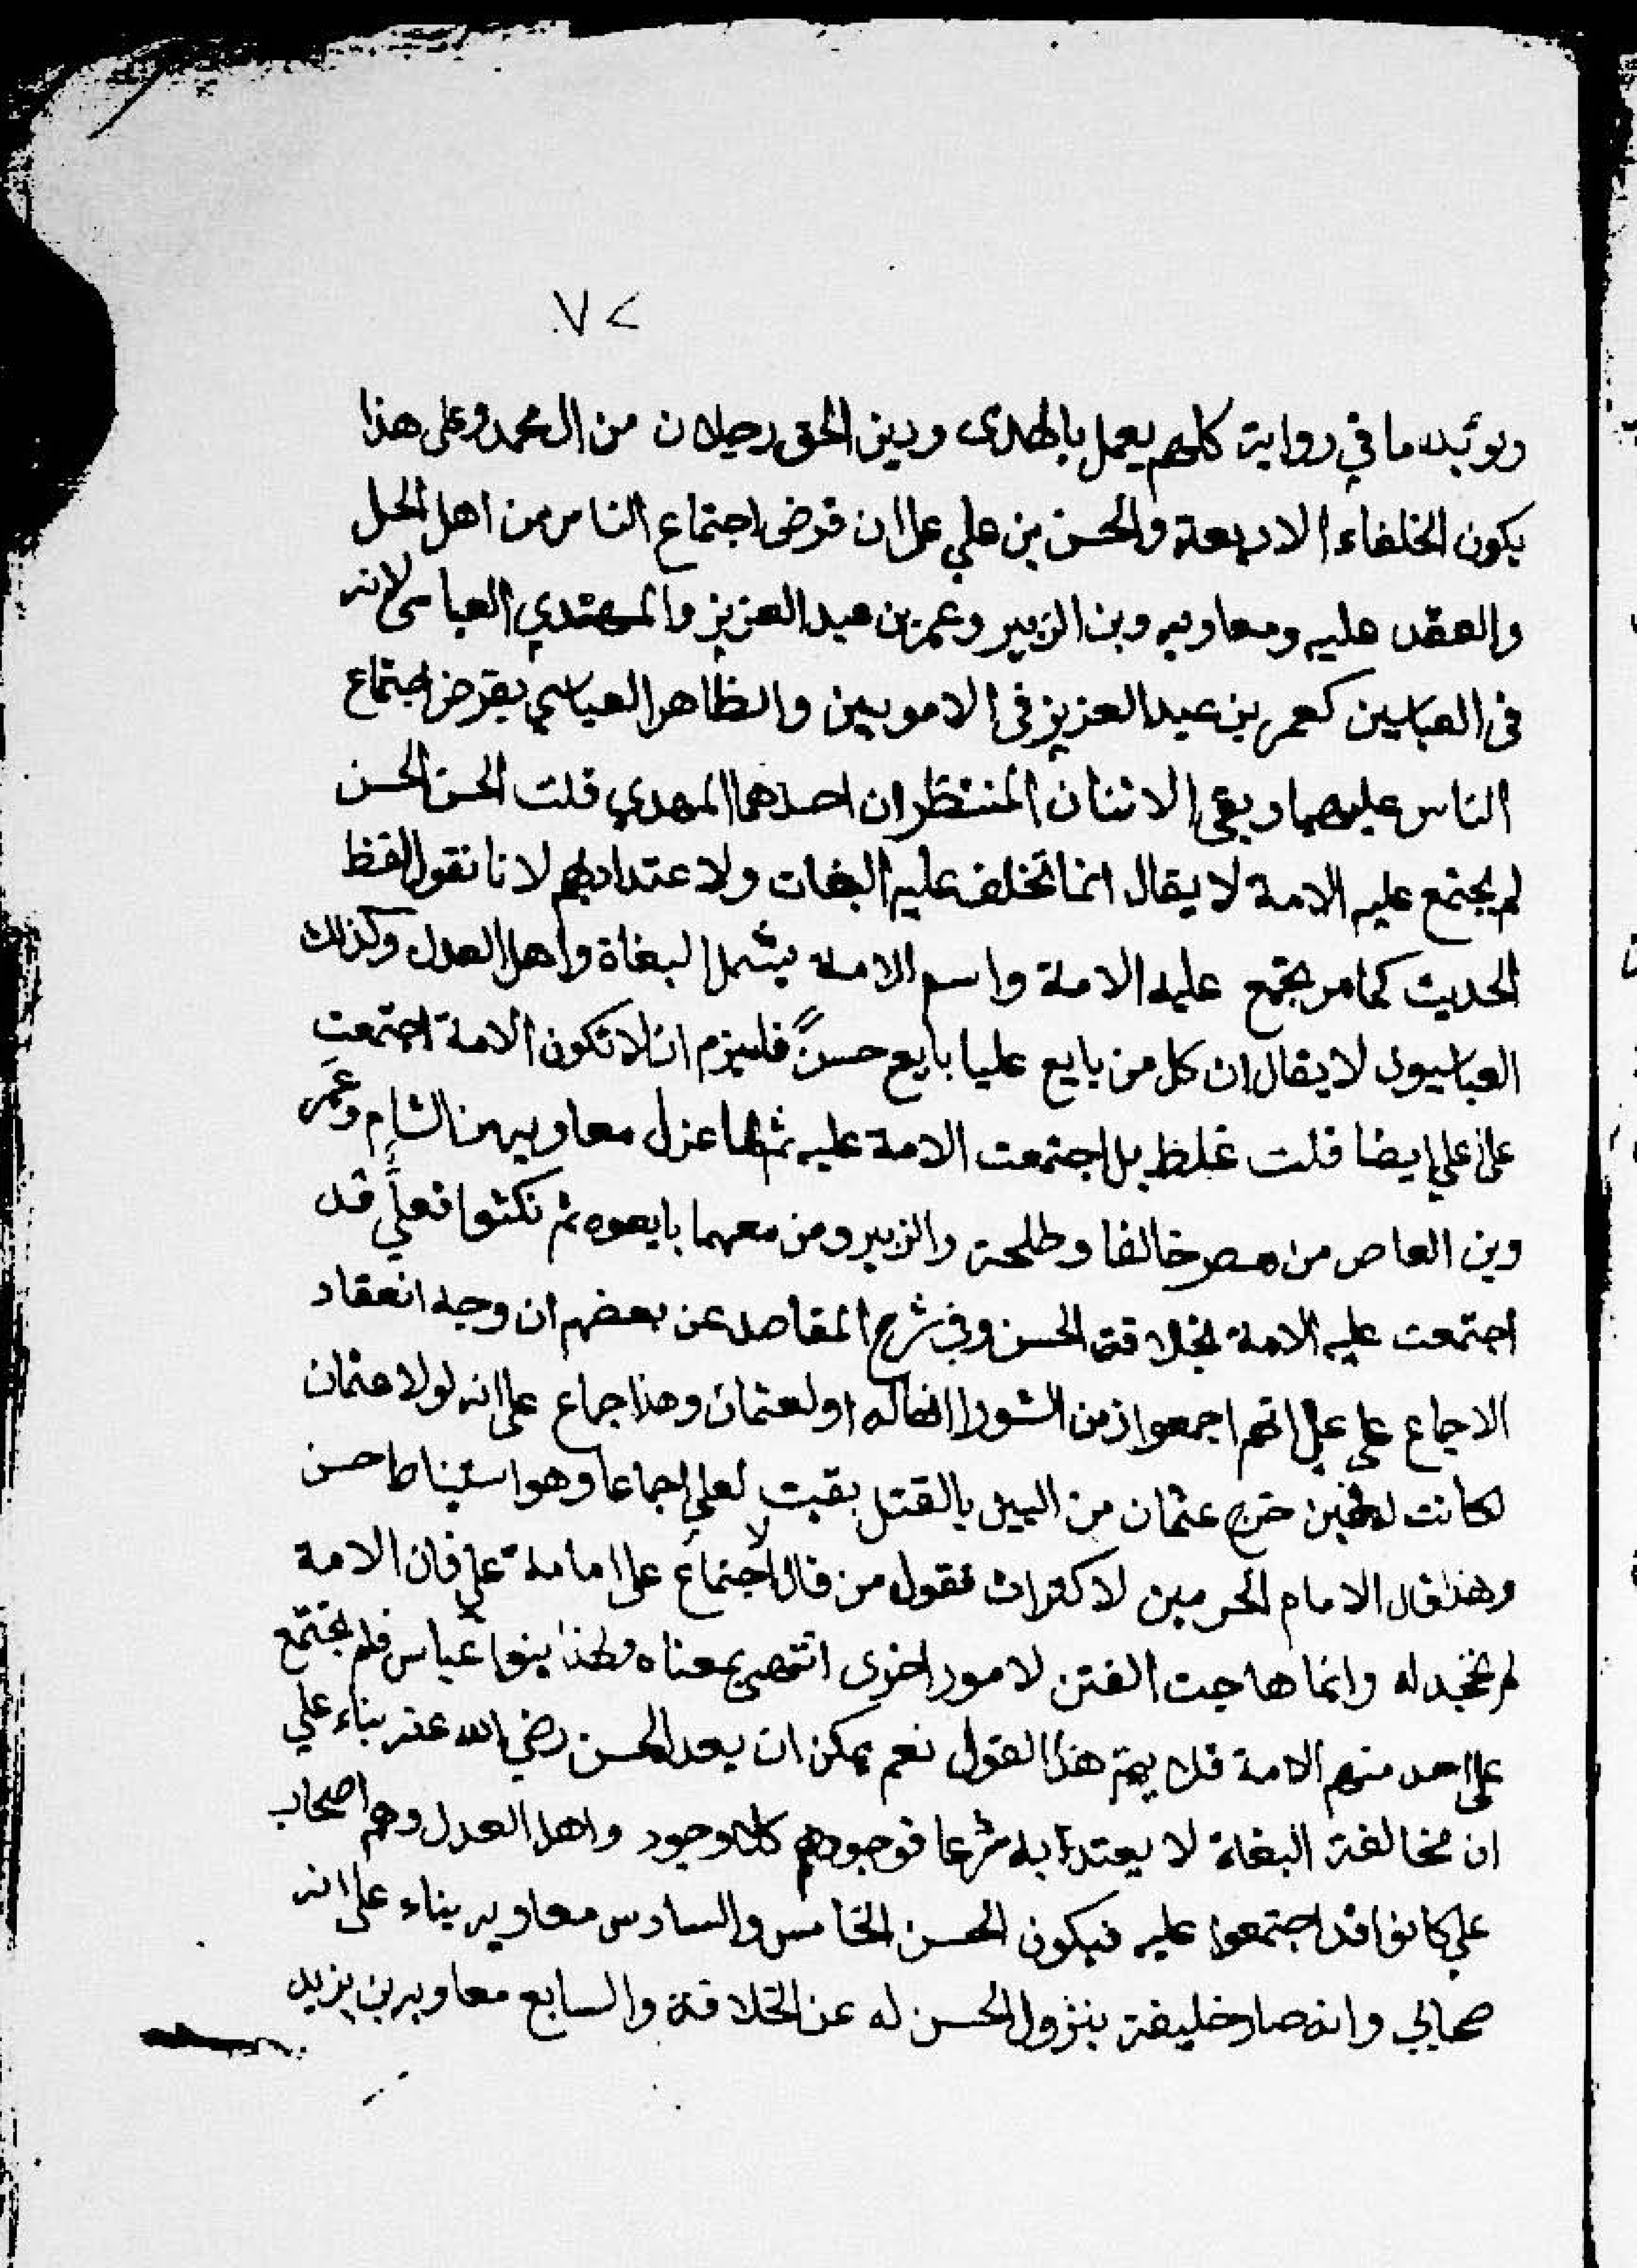 ٧٢
ويوئيده ما في رواية كلهم يعمل بالهدى ودين الحق رجلان من ال محمد وعلى هذا
يكون الخلفاء الاربعة والحسن بن علي على ان فرض اجتماع الناس من اهل الحل
والعقد عليه ومعاويه وبن الزبير وعمر بن عبد العزيز والمهتدي العباسى لانه
فى العباسين كعمر بن عبد العزيز فى الامويين والظاهر العباسي بفرض اجتماع
الناس عليهما وبقى الاثنان المنتظران احدهما المهدي قلت الحسن الحسن
لم يجتمع عليه الامة لا يقال انما تخلف عليه البغات ولا عتداد بهم لانا نقول لفظ
الحديث كما مر يجتمع عليه الامة واسم الامة يشمل البغاة واهل العدل وكذلك
العباسيون لا يقال ان كل من بايع عليا بايع حسنً فليزم ان لا تكون الامة اجتمعت
على علي ايضا قلت غلط بل اجتمعت الامة عليه ثم لما عزل معاويه من الشام وعمر
وبن العاص من مصر خالفا وطلحة والزبير ومن معهما بايعوه ثم نكثوا فعلي قد
اجتمعت عليه الامة بخلاقة الحسن وفي شرح المقاصد عن بعضهم ان وجه انعقاد
الاجماع على علي انهم اجمعوا زمن الشورا انها له او لعثمان وهذا جماع على انه لولا عثمان
لكانت لعلي فحين خرج عثمان من البين بالقتل بقيت لعلي اجماعا وهو استنباط حسن
وهذا قال الامام الحرمين لا كتراث بقول من قال لا اجتماع على امامة علي فان الامة
لم تجحد له وانما هاجت الفتن لامور اخرى انتهى بمعناه ولهذا بنوا عباس فلم تجتمع
على احد منهم الامة فلا يتم هذا القول نعم يمكن ان يعد الحسن رضي الله عنه بناء علي
ان مخالفة البغاة لا يعتد به شرعا فوجودهم كلا وجود واهل العدل وهم اصحاب
علي كانوا قد اجتمعوا عليه فيكون الحسن الخامس والسادس معاويه بناء على انه
صحابي وانه صار خليفة بنزول الحسن له عن الخلافة والسابع معاويه بن يزيد